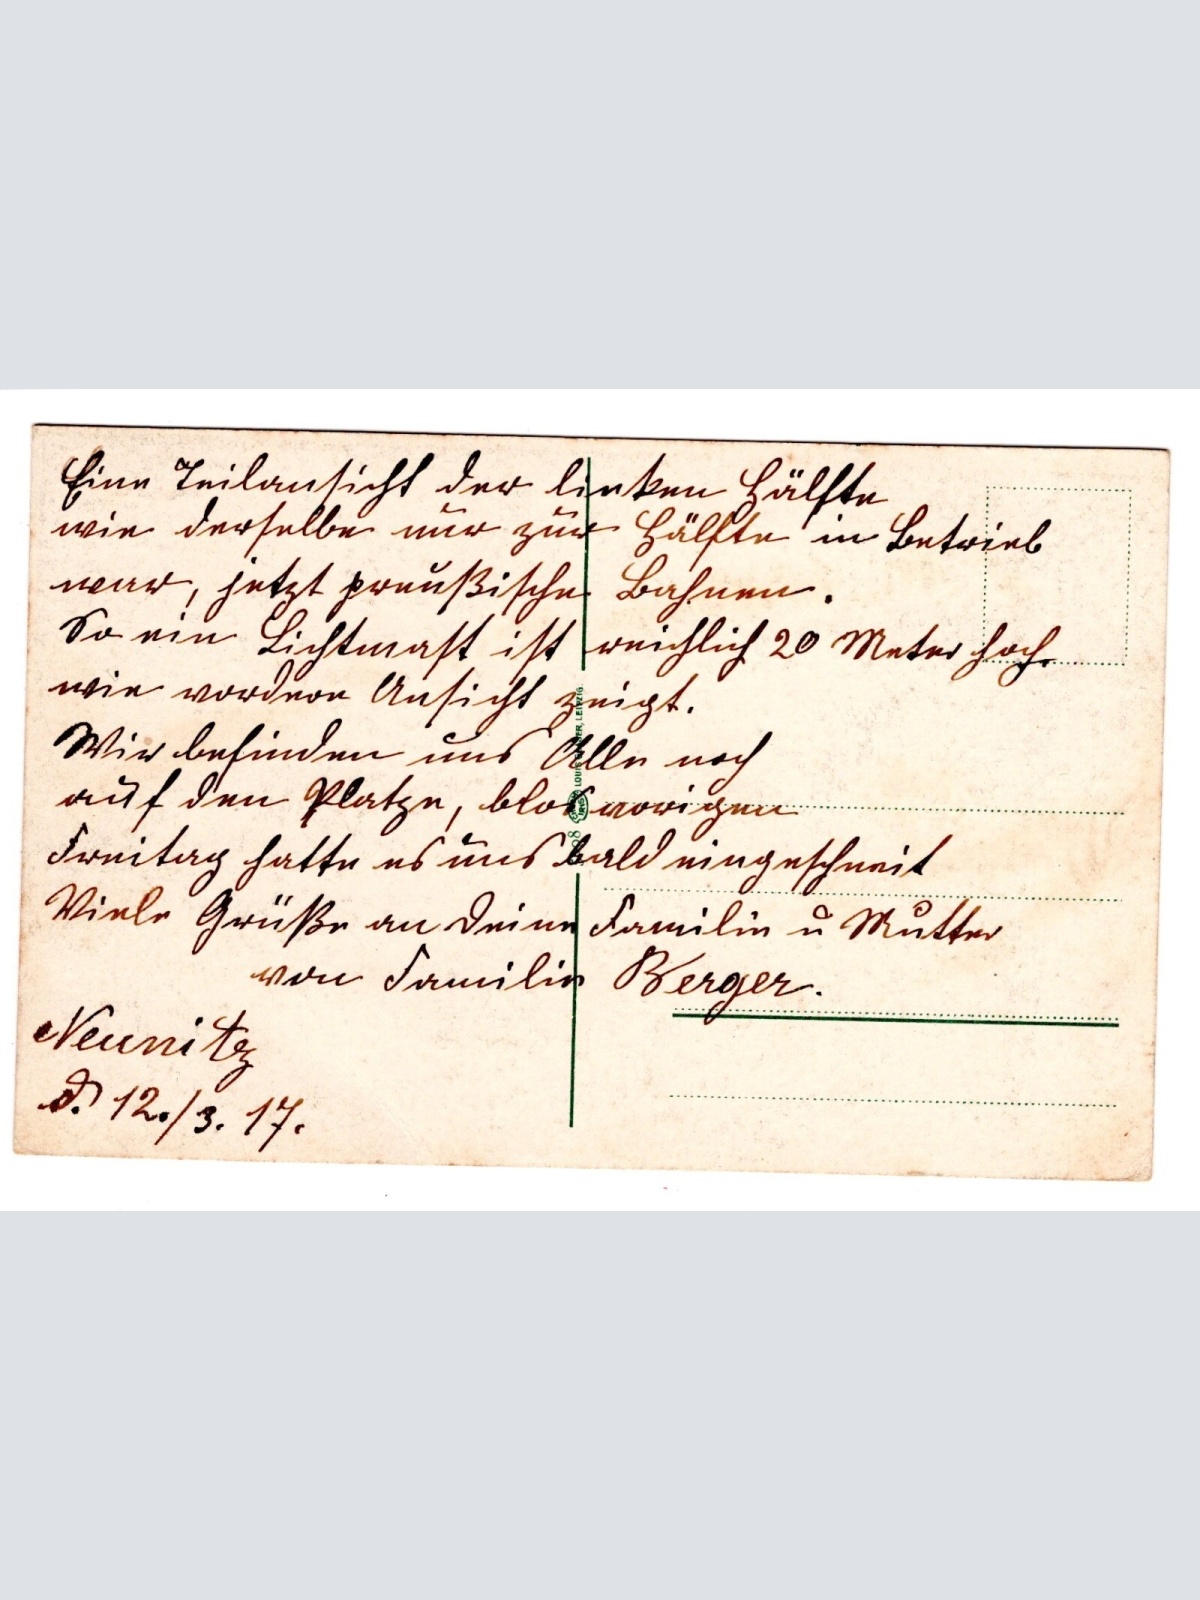 Eine Teilansicht der linken Hälfte
wie derselbe nur zur Hälfte in Betrieb
war, jetzt preußische Bahnen.
So ein Lichtmast ist reichlich 20 Meter hoch.
wie vordere Ansicht zeigt.
Wir befinden uns Alle noch
auf den Platze, blos vorigen
Freitag hatte es uns bald eingeschneit
Viele Grüße an Deine Familie u Mutter
von Familie Berger.
Neunitz
d. 12./3. 17.
LEIPZIG